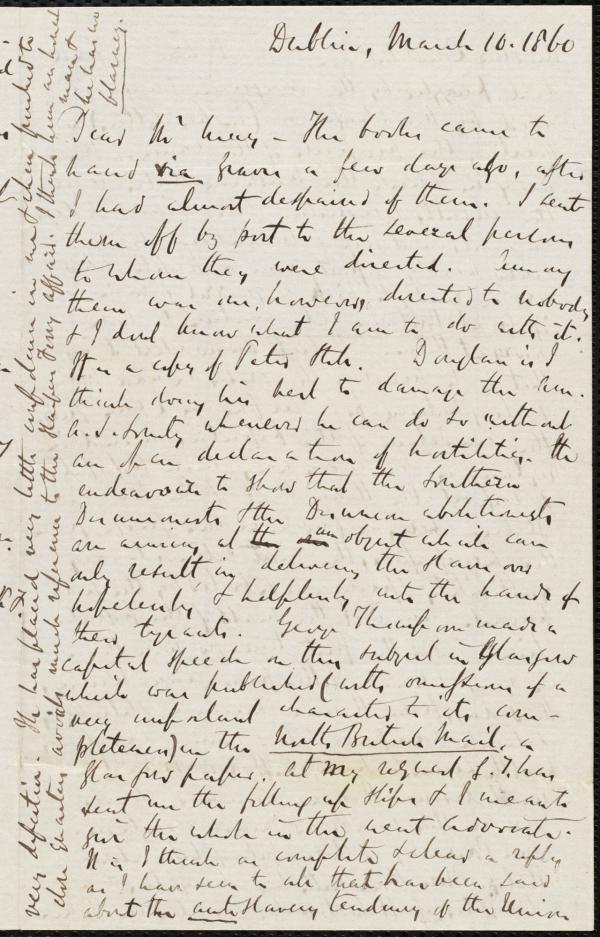 Dublin, March 10. 1860
Dear Mr May – The books came to
hand via Groom a few days ago, after
I had almost despaired of them. I sent
them off by post to the several persons
to whom they were directed. Among
them was one, however, directed to nobody
& I dont know what I am to do with it.
It is a copy of Douglass is I
think doing his best to damage the Am.
A. S. Society whenever he can do so without
an open declaration of hostilities. He
endeavours to show that the Southern
Disunionists & the Disunion abolitionists
are aiming at the same object which can
only result in delivering the slave over
hopelessly & helplessly into the hands of
their tyrants. George Thompson made a
capital speech on this subject in Glasgow
which was published (with omissions of a
very important character to its com-
pleteness) in the North British Mail, a
Glasgow paper. At my request G. T. has
sent me the filling up slips & I mean to
give the whole in the next Advocate.
It is I think as complete & clear a reply
as I have seen to all that has been said
about the antislavery tendency of the Union
very defective. He has placed very little confidence in me & when pushed to
close quarters avoids much reference to the Harpers Ferry affair. I think him an
man &
he has no
blarney.